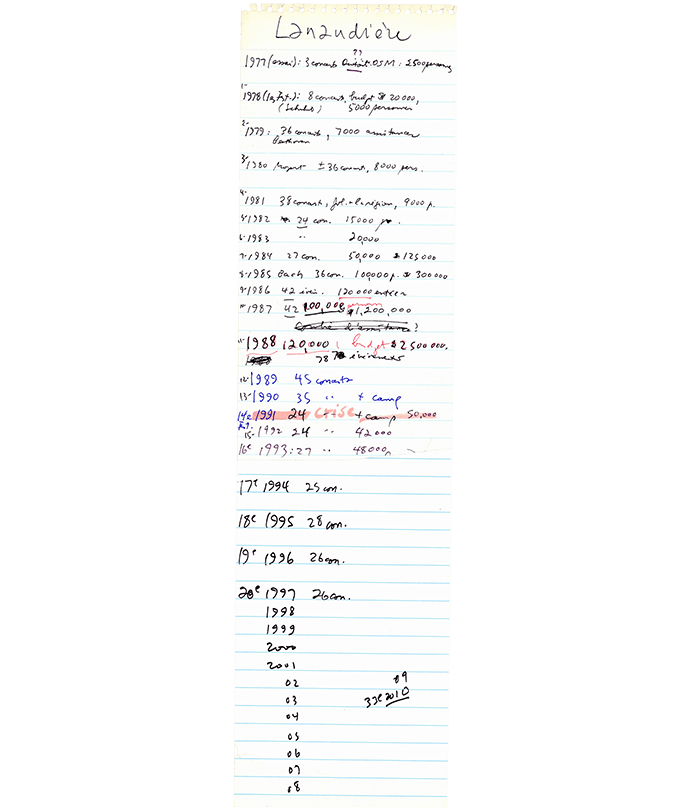 Lanaudière
??
1977 (essai): 3 concerts OSM: 2500 personnes
1- 1978 (1er): 8 concerts, budget $20 000,
5000 personnes
2- 1979: 36 concerts, 7000 assistances
Beethoven
3- 1980 Mozart ± 36 concerts, 8000 pers.
4- 1981 38 concerts, région, 9000 p.
5- 1982 24 con. 15000 p.
6- 1983 " 20,000
7- 1984 27 con. 50,000 $125 000
8- 1985 Bach 36 con. 100,000 p. $300 000
9- 1986 42 120 000 entrées
10- 1987 42 100,000 $1,200,000
?
11- 1988 120,000 budget $2 500 000.
78 événements
12- 1989 45 concerts
13- 1990 35 " + camp
14e 1991 24 crise " + camp 50,000
15- 1992 24 " 42 000
16e 1993: 27 " 48000
17e 1994 25 con.
18e 1995 28 con.
19e 1996 26 con.
20e 1997 26 con.
1998
1999
2000
2001
02 09
03 33e 2010
04
05
06
07
08